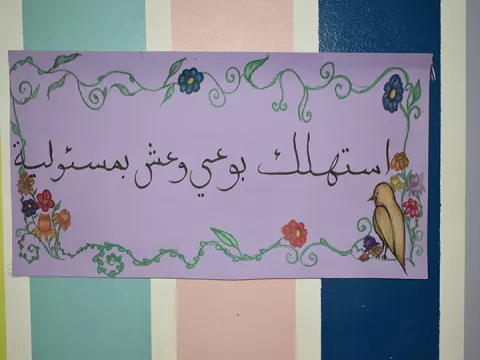 استهلك بوعي وعش بمسئولية